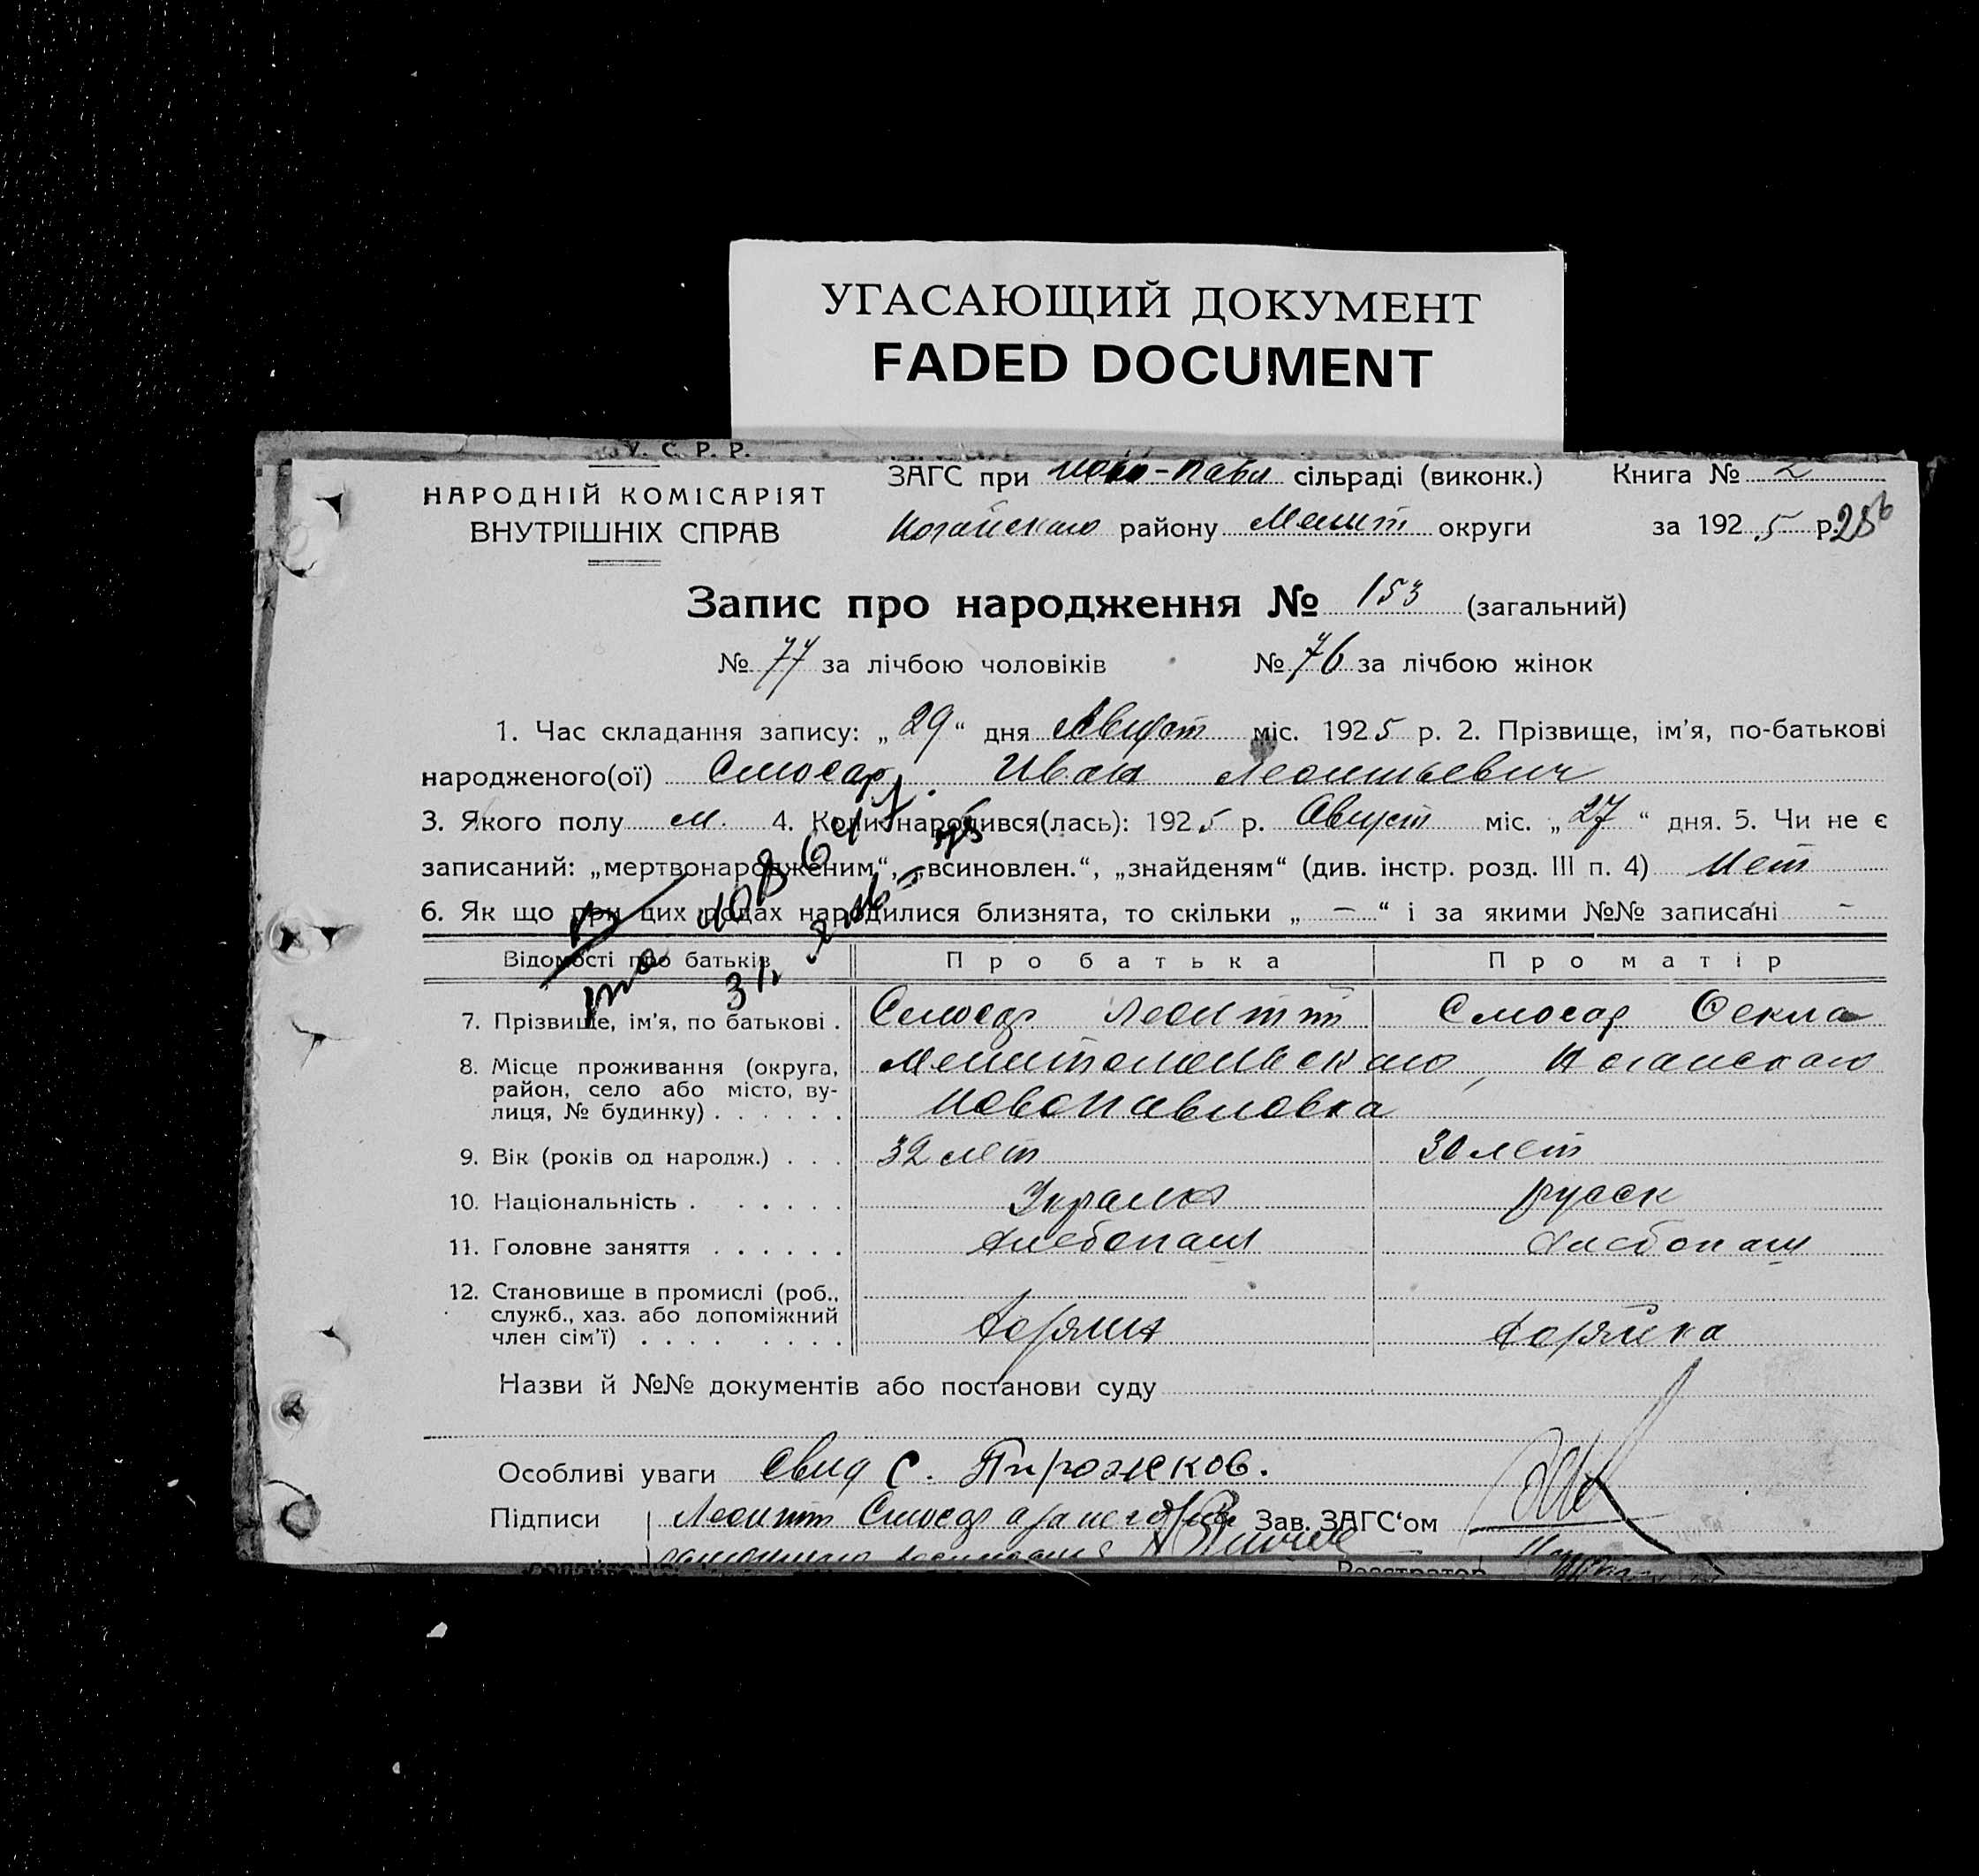 УГАСАЮЩИЙ ДОКУМЕНТ
FADED DOCUMENT
У. С. Р. Р.
НАРОДНІЙ КОМІСАРІЯТ
ВНУТРІШНІХ СПРАВ
ЗАГС при Ново-Павл сільраді (виконк.) Книга № 2
Ногайскаго району Мелит округи за 1925 р.
Запис про народження № 153 (загальний)
№ 77 за лічбою чоловіків № 76 за лічбою жінок
1. Час складання запису: „29“ дня Август міс. 1925 р. 2. Прізвище, ім'я, по-батькові
народженого(ої) Слюсар Иван Леонтьевич
3. Якого полу м. 4. Коли народився(лась): 1925 р. Август міс. „27“ дня. 5. Чи не є
записаний: „мертвонародженим“, „всиновлен.“, „знайденям“ (див. інстр. розд. III п. 4) Нет
6. Як що при цих родах народилися близнята, то скільки „ – “ і за якими №№ записані –
Відомості про батьків Про батька Про матір
7. Прізвище, ім'я, по батькові . Слюсар Леонтт Слюсар Фекла
8. Місце проживання (округа, Мелитопольскаго, Ногайскаго
район, село або місто, ву-
лиця, № будинку) . . . . . . Новопавловка
9. Вік (років од народж.) . . . 32 лет 30 лет
10. Національність . . . . . . Украин русск
11. Головне заняття . . . . . . хлебопаш хлебопаш
12. Становище в промислі (роб.,
служб., хаз. або допоміжний
член сім'ї) . . . . . . . . хозяин хозяйка
Назви й №№ документів або постанови суду
Особливі уваги свид С. Пирожков.
Підписи Леонтт Слюсар Зав. ЗАГС'ом
Реєстратор